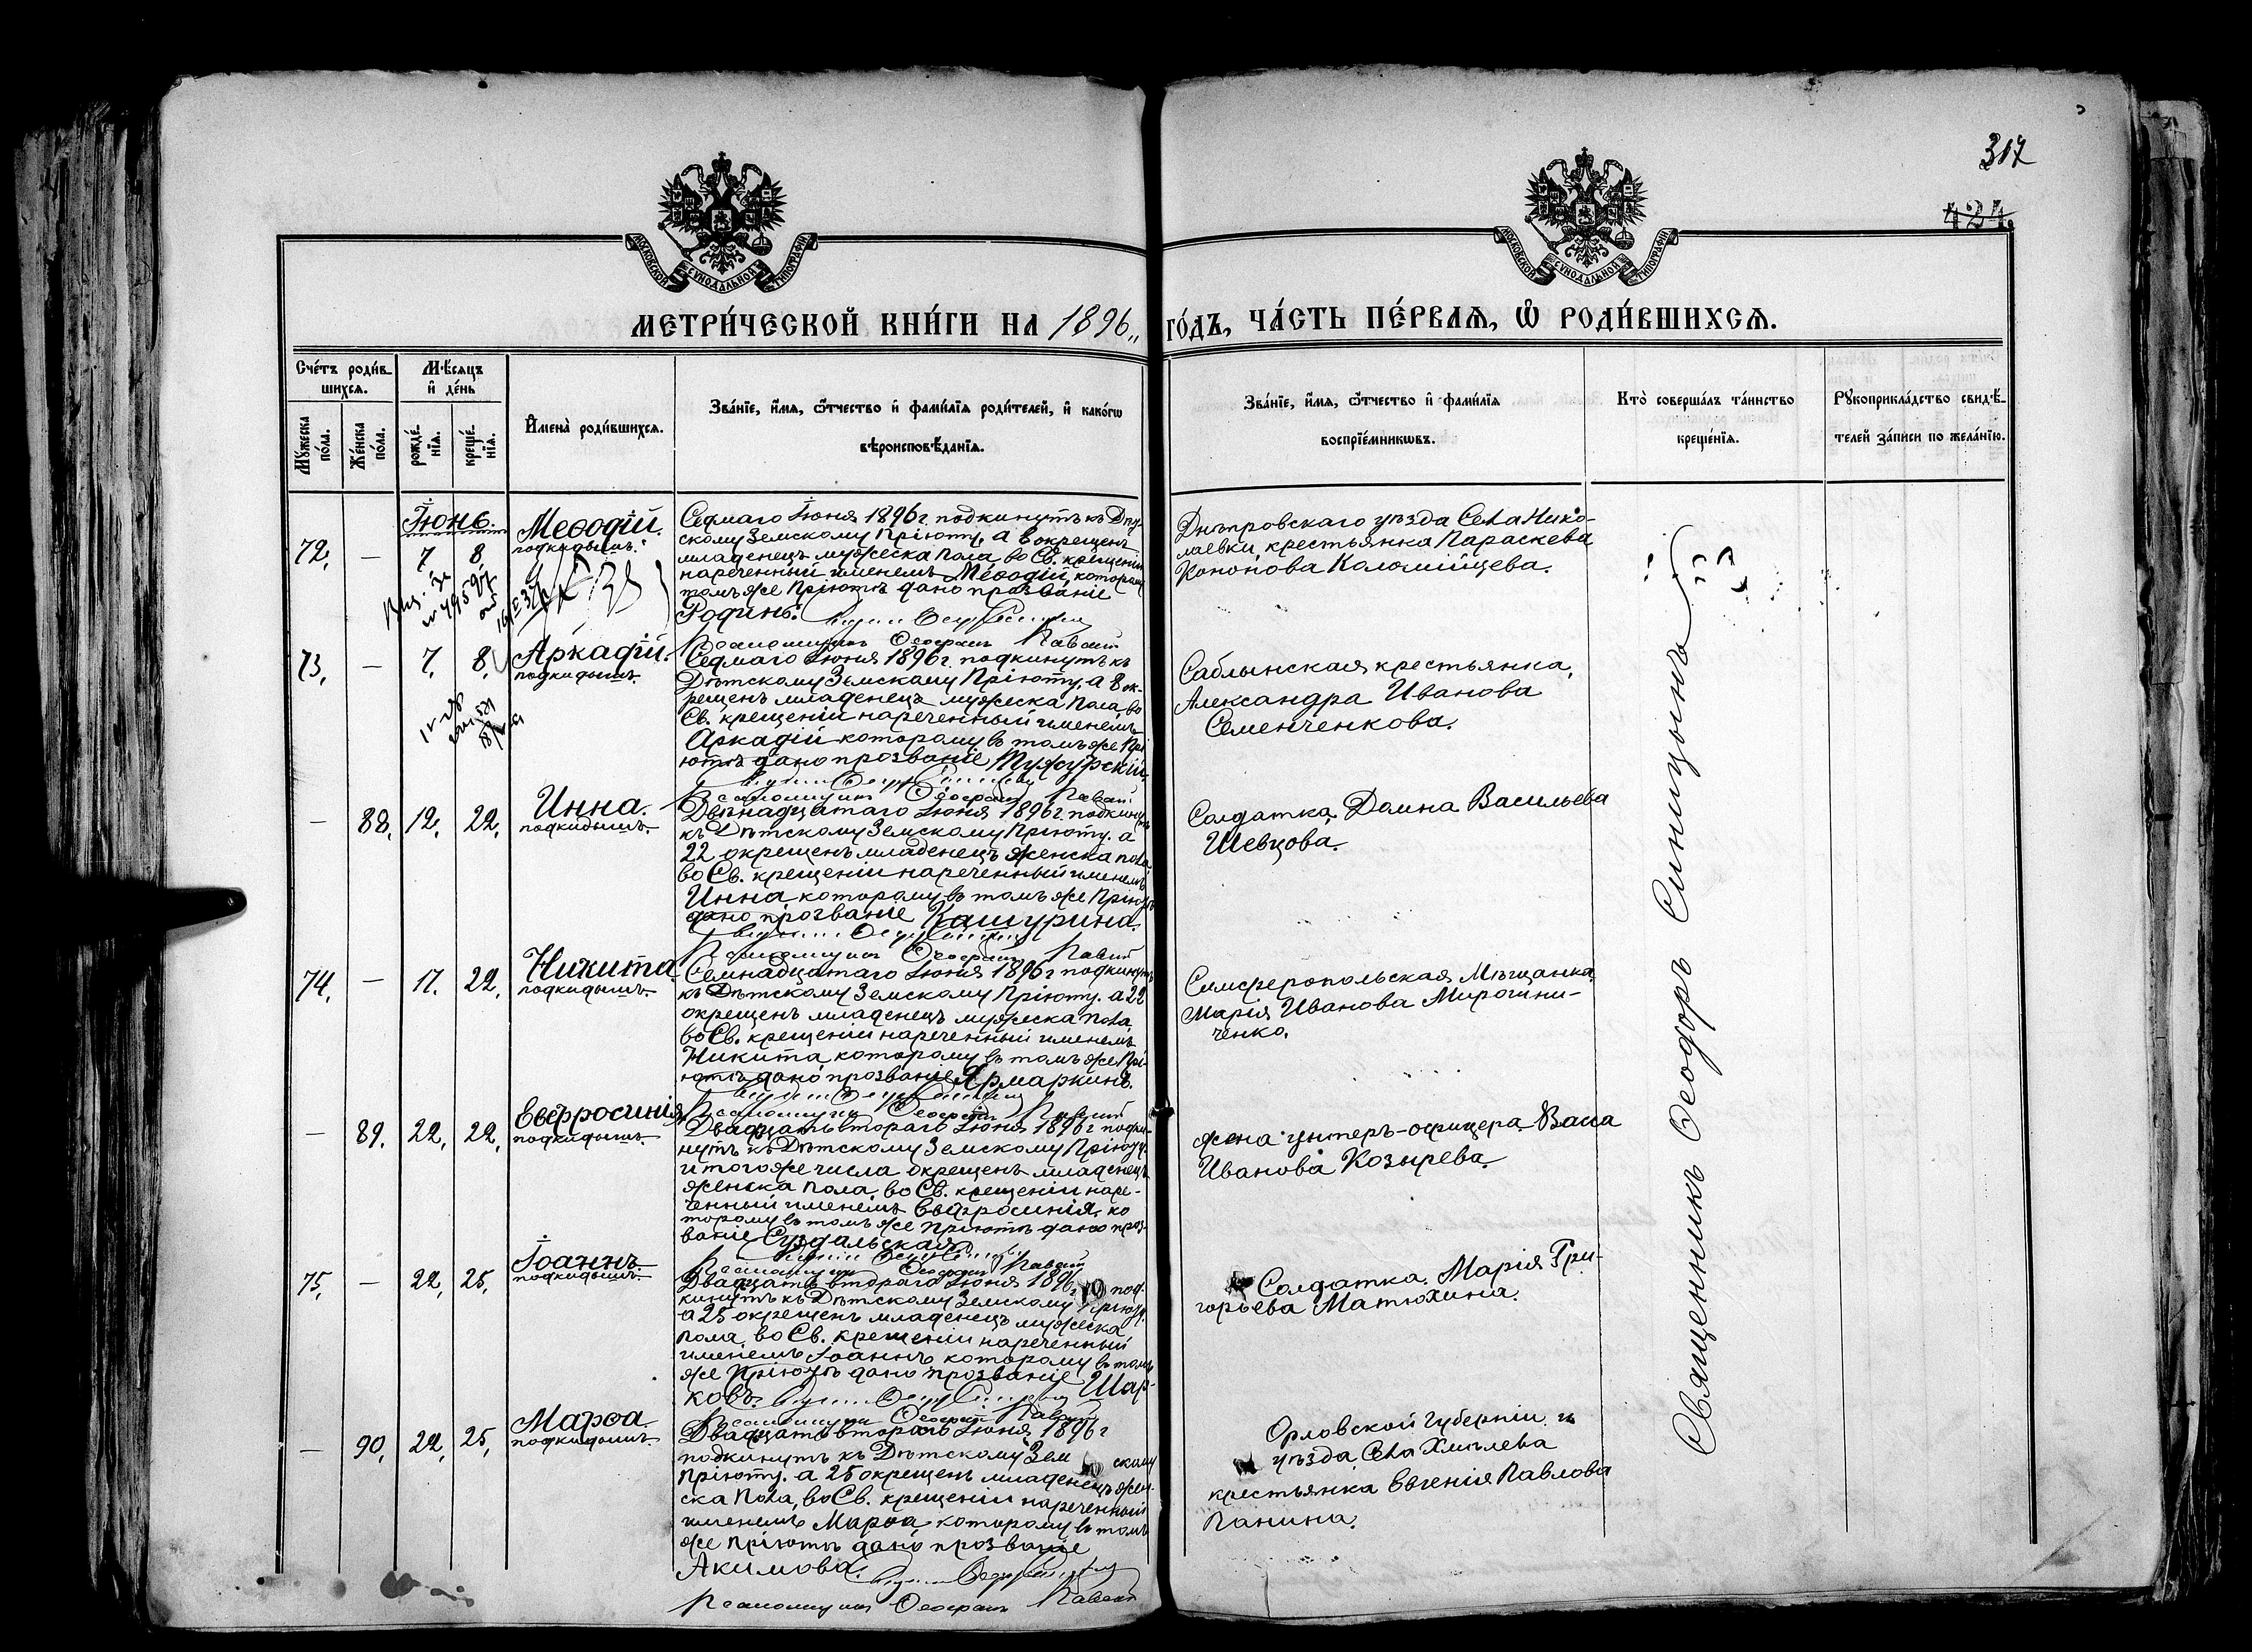 317
424.
МОСКОВСКОЙ СУНОДАЛЬНОЙ ТИПОГРАФІИ
МОСКОВСКОЙ СУНОДАЛЬНОЙ ТИПОГРАФІИ
МЕТРИ́ЧЕСКОЙ КНИ́ГИ НА 1896 ГО́ДЪ, ЧА́СТЬ ПЕ́РВАѦ, Ѡ҆ РОДИ́ВШИХСѦ.
Сче́тъ роди́в-
шихся.
Мѣ́сяцъ
и҆ де́нь
Му́жеска
по́ла.
Же́нска
по́ла.
рожде́-
нія.
креще́-
нія.
И҆мена̀ роди́вшихся.
Зва́ніе, и҆́мя, ѻ҆́тчество и҆ фами́лія роди́телей, и҆ како́гѡ
вѣроисповѣ́данія.
Зва́ніе, и҆́мя, ѻ҆́тчество и҆ фами́лія
воспріе́мникѡвъ.
Кто̀ соверша́лъ та́инство
креще́нія.
Рукоприкла́дство свидѣ́-
телей за́писи по жела́нію.
Іюнь.
72. — 7 8 Меѳодій.
подкидышъ.
Седмаго Іюня 1896 г. подкинутъ къ Дѣт-
скому Земскому Пріюту, а 8 окрещенъ
младенецъ мужеска пола, во Св. крещеніи
нареченный именемъ Меѳодій, которому
томъ же Пріютѣ дано прозваніе
Родинъ.
Псаломщикъ
Днѣпровскаго уѣзда Села Нико-
лаевки, крестьянка Параскева
Кононова Коломійцева.
73. — 7. 8. Аркадій.
подкидышъ.
Седмаго Іюня 1896 г. подкинутъ къ
Дѣтскому Земскому Пріюту, а 8 ок-
рещенъ младенецъ мужеска пола, во
Св. крещеніи нареченный именемъ
Аркадій которому въ томъ же Прі
ютѣ дано прозваніе
Псаломщикъ
Саблынская крестьянка,
Александра Иванова
Семенченкова.
— 88. 12. 22. Инна.
подкидышъ.
Двѣнадцатаго Іюня 1896 г. подкинутъ
къ Дѣтскому Земскому Пріюту. а
22 окрещенъ младенецъ женска пола
во Св. крещеніи нареченный именемъ
Инна которому въ томъ же Пріютѣ
дано прозваніе Кашурина.
Псаломщикъ
Солдатка Домна Васильева
Шевцова.
74. — 17. 22. Никита
подкидышъ.
Семнадцатаго Іюня 1896 г подкинутъ
къ Дѣтскому Земскому Пріюту. а 22
окрещенъ младенецъ мужеска пола
во Св. крещеніи нареченный именемъ
Никита которому въ томъ же Прі-
ютѣ дано прозваніе Ярмаркинъ.
Псаломщикъ
Симферопольская Мѣщанка
Марія Иванова Мирошни-
ченко.
— 89. 22. 22. Евфросинія
подкидышъ.
Двадцать втораго Іюня 1896 г подки-
нутъ къ Дѣтскому Земскому Пріюту.
и того же числа окрещенъ младенецъ
женска пола, во Св. крещеніи наре-
ченный именемъ Евфросинія, ко
торому въ томъ же Пріютѣ дано проз-
ваніе Суздальская
Псаломщикъ
жена унтеръ-офицера Васа
Иванова Козырева.
75. — 22. 25. Іоаннъ
подкидышъ.
Двадцать втораго Іюня 1896 г под-
кинутъ къ Дѣтскому Земскому Пріюту.
а 25 окрещенъ младенецъ мужеска
пола, во Св. крещеніи нареченный
именемъ Іоаннъ которому въ томъ
же Пріютѣ дано прозваніе Шар-
ковъ.
Псаломщикъ
Солдатка. Марія Гри-
горьева Матюхина.
— 90. 22. 25. Марѳа.
подкидышъ.
Двадцать втораго Іюня 1896 г
подкинутъ къ Дѣтскому Земскому
Пріюту. а 25 окрещенъ младенецъ жен-
ска пола, во Св. крещеніи нареченный
именемъ Марѳа которому въ томъ
же Пріютѣ дано прозваніе
Акимова.
Псаломщикъ
Орловской Губерніи и
уѣзда, Села Хмѣлева
крестьянка Евгенія Павлова
Панина.
Священникъ Ѳеодоръ Синицынъ